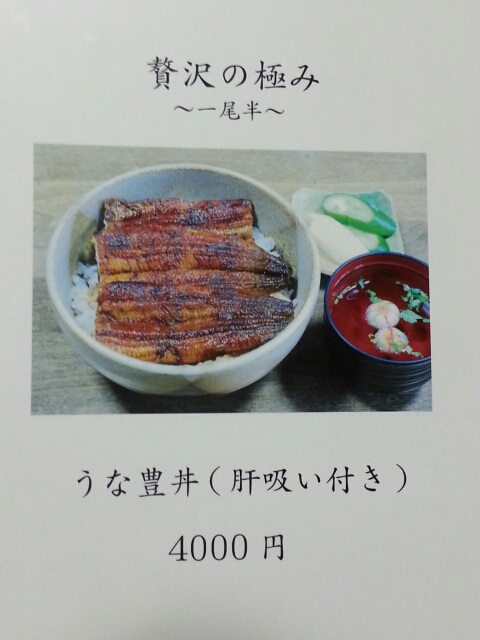 贅沢の極み
～一尾半～
うな豊丼(肝吸い付き)
4000円